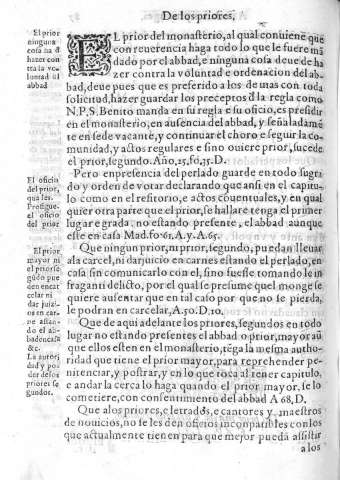 De los priores,
EL prior del monasterio, al qual conuiene que
con reuerencia haga todo lo que le fuere mã
dado por el abbad, e ninguna cosa deue de ha
zer contra la voluntad e ordenacion del ab-
bad, deue pues que es preferido a los de mas con toda
solicitud, hazer guardar los preceptos de la regla como
N.P.S. Benito manda en su regla e su oficio, es presidir
en el monasterio, en ausencia del abbad, y señaladamẽ
te en sede vacante, y continuar el choro e seguir la co-
munidad, y actos regulares e sino ouiere prior, sucede
el prior, segundo. Año, 25, fo, 35. D.
Pero en presencia del perlado guarde en todo su gra
do y orden de votar declarando que ansi en el capitu-
lo como en el refitorio, e actos couentuales, y en qual
quier otra parte que el prior, se hallare tenga el primer
lugar e grada, no estando presente, el abbad aunque
este en casa Mad. fo. 61. A. y A. 65.
Que ningun prior, ni prior, segundo, puedan lleuar
a la carcel, ni dar juicio en carnes estando el perlado, en
casa sin comunicarlo con el, sino fuesse tomando le in
fraganti delicto, por el qual se presume quel monge se
quiere ausentar que en tal caso por que no se pierda,
le podran en carcelar, A. 50. D. 10.
Que de aqui adelante los priores, segundos en todo
lugar no estando presentes el abbad o prior, mayor aũ
que ellos esten en el monasterio, tẽga la mesma autho-
ridad que tiene el prior mayor, para reprehender pe-
nitenciar, y postrar, y en lo que toca al tener capitulo,
e andar la cerca lo haga quando el prior mayor, se lo
cometiere, con consentimiento del abbad A 68, D.
Que a los priores, e letrados, e cantores y maestros
de nouicios, no se les den oficios incompatibles con los
que actualmente tienen para que mejor puedã assistir
a los
El prior
ninguna
cosa ha d
hazer con
tra la vo-
luntad ãl
abbad
El oficio
del prior,
qual es.
Prosigue,
el oficio
del prior
El prior
mayor ni
el prior se
gũdo pue
den encar
celar ni
dar juizi-
os en car-
ne estan-
do el ab-
bad en casa
&c.
La autori
dad y po-
der de los
priores se
gundos.